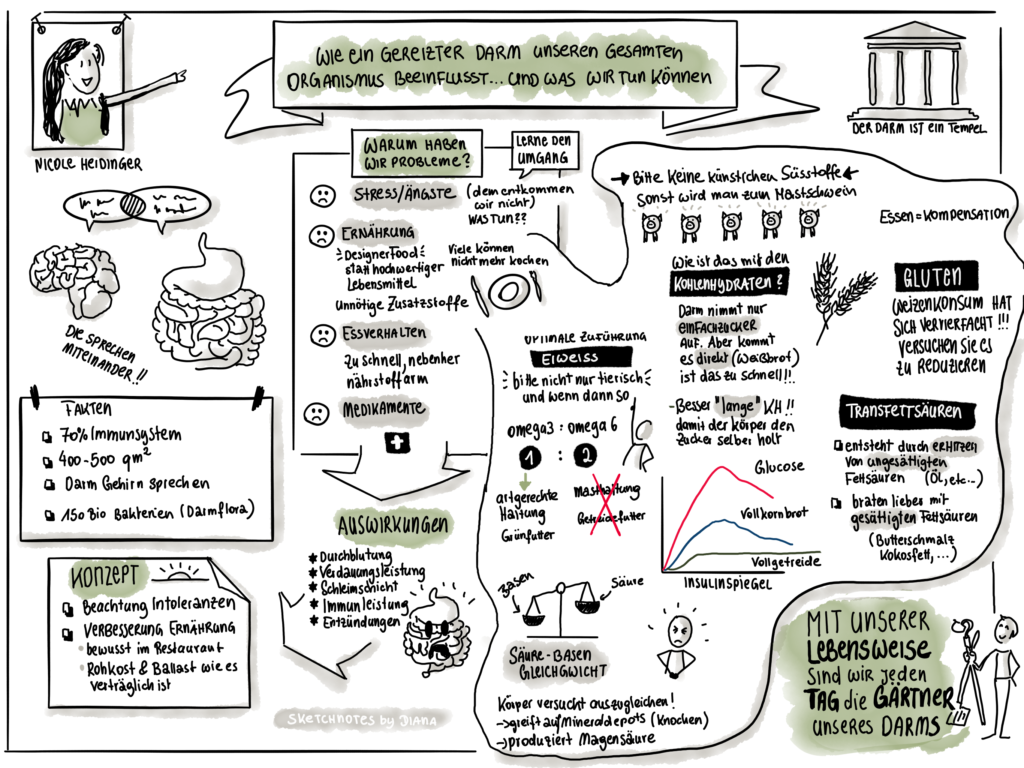 WIE EIN GEREIZTER DARM UNSEREN GESAMTEN
ORGANISMUS BEEINFLUSST... UND WAS WIR TUN KÖNNEN
NICOLE HEIDINGER
DER DARM IST EIN TEMPEL
DIE SPRECHEN
MITEINANDER!!
FAKTEN
70% Immunsystem
400-500 qm²
Darm Gehirn sprechen
150 Bio Bakterien (Darmflora)
KONZEPT
Beachtung Intoleranzen
VERBESSERUNG ERNÄHRUNG
bewusst im Restaurant
Rohkost & Ballast wie es
verträglich ist
WARUM HABEN
WIR PROBLEME?
LERNE DEN
UMGANG
STRESS/ÄNGSTE
(dem entkommen
wir nicht)
WAS TUN??
ERNÄHRUNG
Designerfood
statt hochwertiger
Lebensmittel
Unnötige Zusatzstoffe
Viele können
nicht mehr kochen
ESSVERHALTEN
Zu schnell, nebenher
nährstoffarm
MEDIKAMENTE
AUSWIRKUNGEN
* Durchblutung
* Verdauungsleistung
* Schleimschicht
* Immunleistung
* Entzündungen
SKETCHNOTES by DIANA
Bitte Keine künstlichen Süsstoffe
Sonst wird man zum Mastschwein
ESSEN = KOMPENSATION
Wie ist das mit den
KOHLENHYDRATEN?
Darm nimmt nur
EINFACHZUCKER
AUF. Aber kommt
es direkt (Weißbrot)
ist das zu schnell!!.
- Besser "lange" KH!!
damit der Körper den
Zucker selber holt
Glucose
Vollkornbrot
Vollgetreide
INSULINSPIEGEL
GLUTEN
WEIZENKONSUM HAT
SICH VERVIERFACHT!!!
VERSUCHEN SIE ES
ZU REDUZIEREN
TRANSFETTSÄUREN
entsteht durch ERHITZEN
von ungesättigten
Fettsäuren (Öl, etc...)
braten lieber mit
gesättigten Fettsäuren
(Butterschmalz
Kokosfett,...)
OPTIMALE ZUFÜHRUNG
EIWEISS
bitte nicht nur tierisch
und wenn dann so
omega3 : omega 6
1 : 2
artgerechte
Haltung
Grünfutter
Masthaltung
Getreidefutter
Basen
Säure
SÄURE-BASEN
GLEICHGWICHT
Körper versucht auszugleichen!
→ greift auf Mineraldepots (Knochen)
→ produziert Magensäure
MIT UNSERER
LEBENSWEISE
SIND WIR JEDEN
TAG die GÄRTNER
UNSERES DARMS